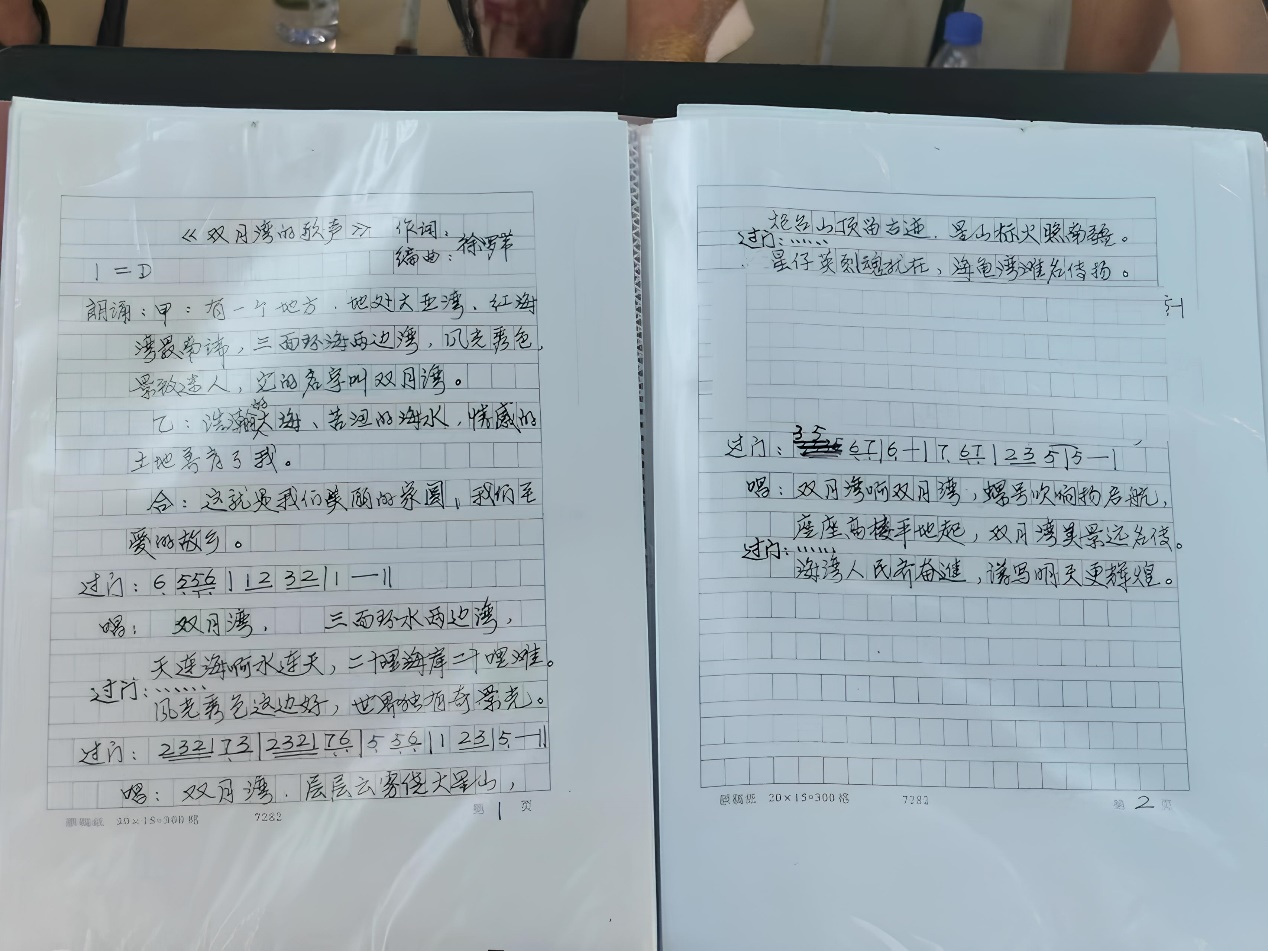 《双月湾的歌声》 作词：
编曲：徐罗苹
1=D
朗诵：甲：有一个地方，地处大亚湾、红海
湾最南端，三面环海两边湾，风光秀色，
景致迷人，它的名字叫双月湾。
乙：浩瀚的大海、苦涩的海水，情感的
土地养育了我。
合：这就是我们美丽的家园，我们至
爱的故乡。
过门：6 556|12 32|1—||
唱：双月湾， 三面环水两边湾，
天连海啊水连天，二十里海岸二十里滩。
过门：、、、、、、
风光秀色这边好，世界独有奇景光。
过门：2321 73|2321 76|5 56|1 23|5—||
唱：双月湾，层层云雾绕大星山，
第 1 页
20×15=300格 7282
炮台山顶留古迹，星山标火照南疆。
过门：、、、、、
星仔英烈魂犹在，海龟湾滩名传扬。
过门：35 67|6—|7 67|23 5|5—|
唱：双月湾啊双月湾，螺号吹响扬启航，
座座高楼平地起，双月湾美景远名传。
过门：、、、、、
海湾人民齐奋进，谱写明天更辉煌。
20×15=300格 7282
第 2 页